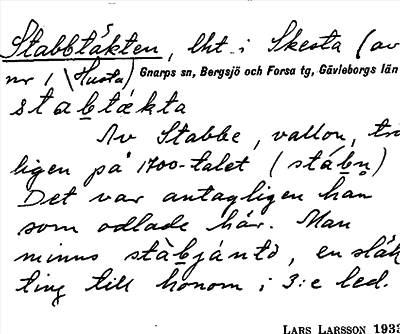 Stabbtäkten, lht i Skesta (av
nr 1 \Husta) Gnarps sn, Bergsjö och Forsa tg, Gävleborgs län
stabtækta
Av Stabbe, vallon, tro
ligen på 1700-talet (stábn̥)
Det var antagligen han
som odlade här. Man
minns stàbjántɔ, en släk
ting till honom i 3:e led.
LARS LARSSON 1933